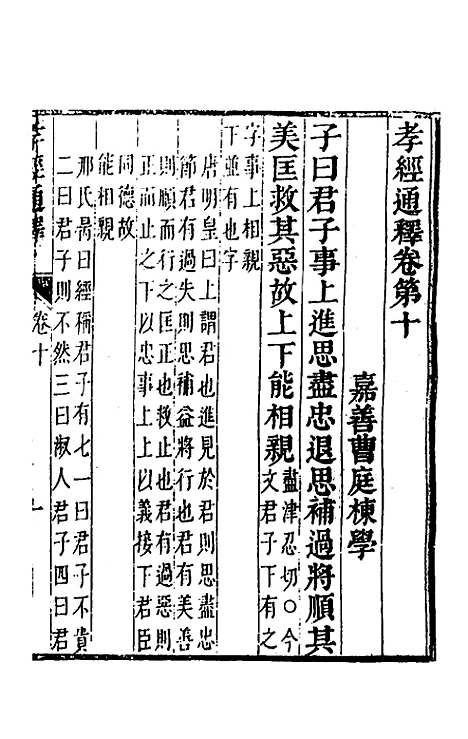 孝經通釋卷第十
嘉善曹庭棟學
子曰君子事上進思盡忠退思補過將順其
美匡救其惡故上下能相親盡津忍切○今文君子下有之
字事上相親
下並有也字
唐明皇曰上謂君也進見於君則思盡忠
節君有過失則思補益將行也君有美善
則順而行之匡正也救止也君有過惡則
正而止之下以忠事上上以義接下君臣
同德故
能相親
邢氏昺曰經稱君子有七一曰君子不貴
二曰君子則不然三曰淑人君子四曰君
孝經通釋
卷十